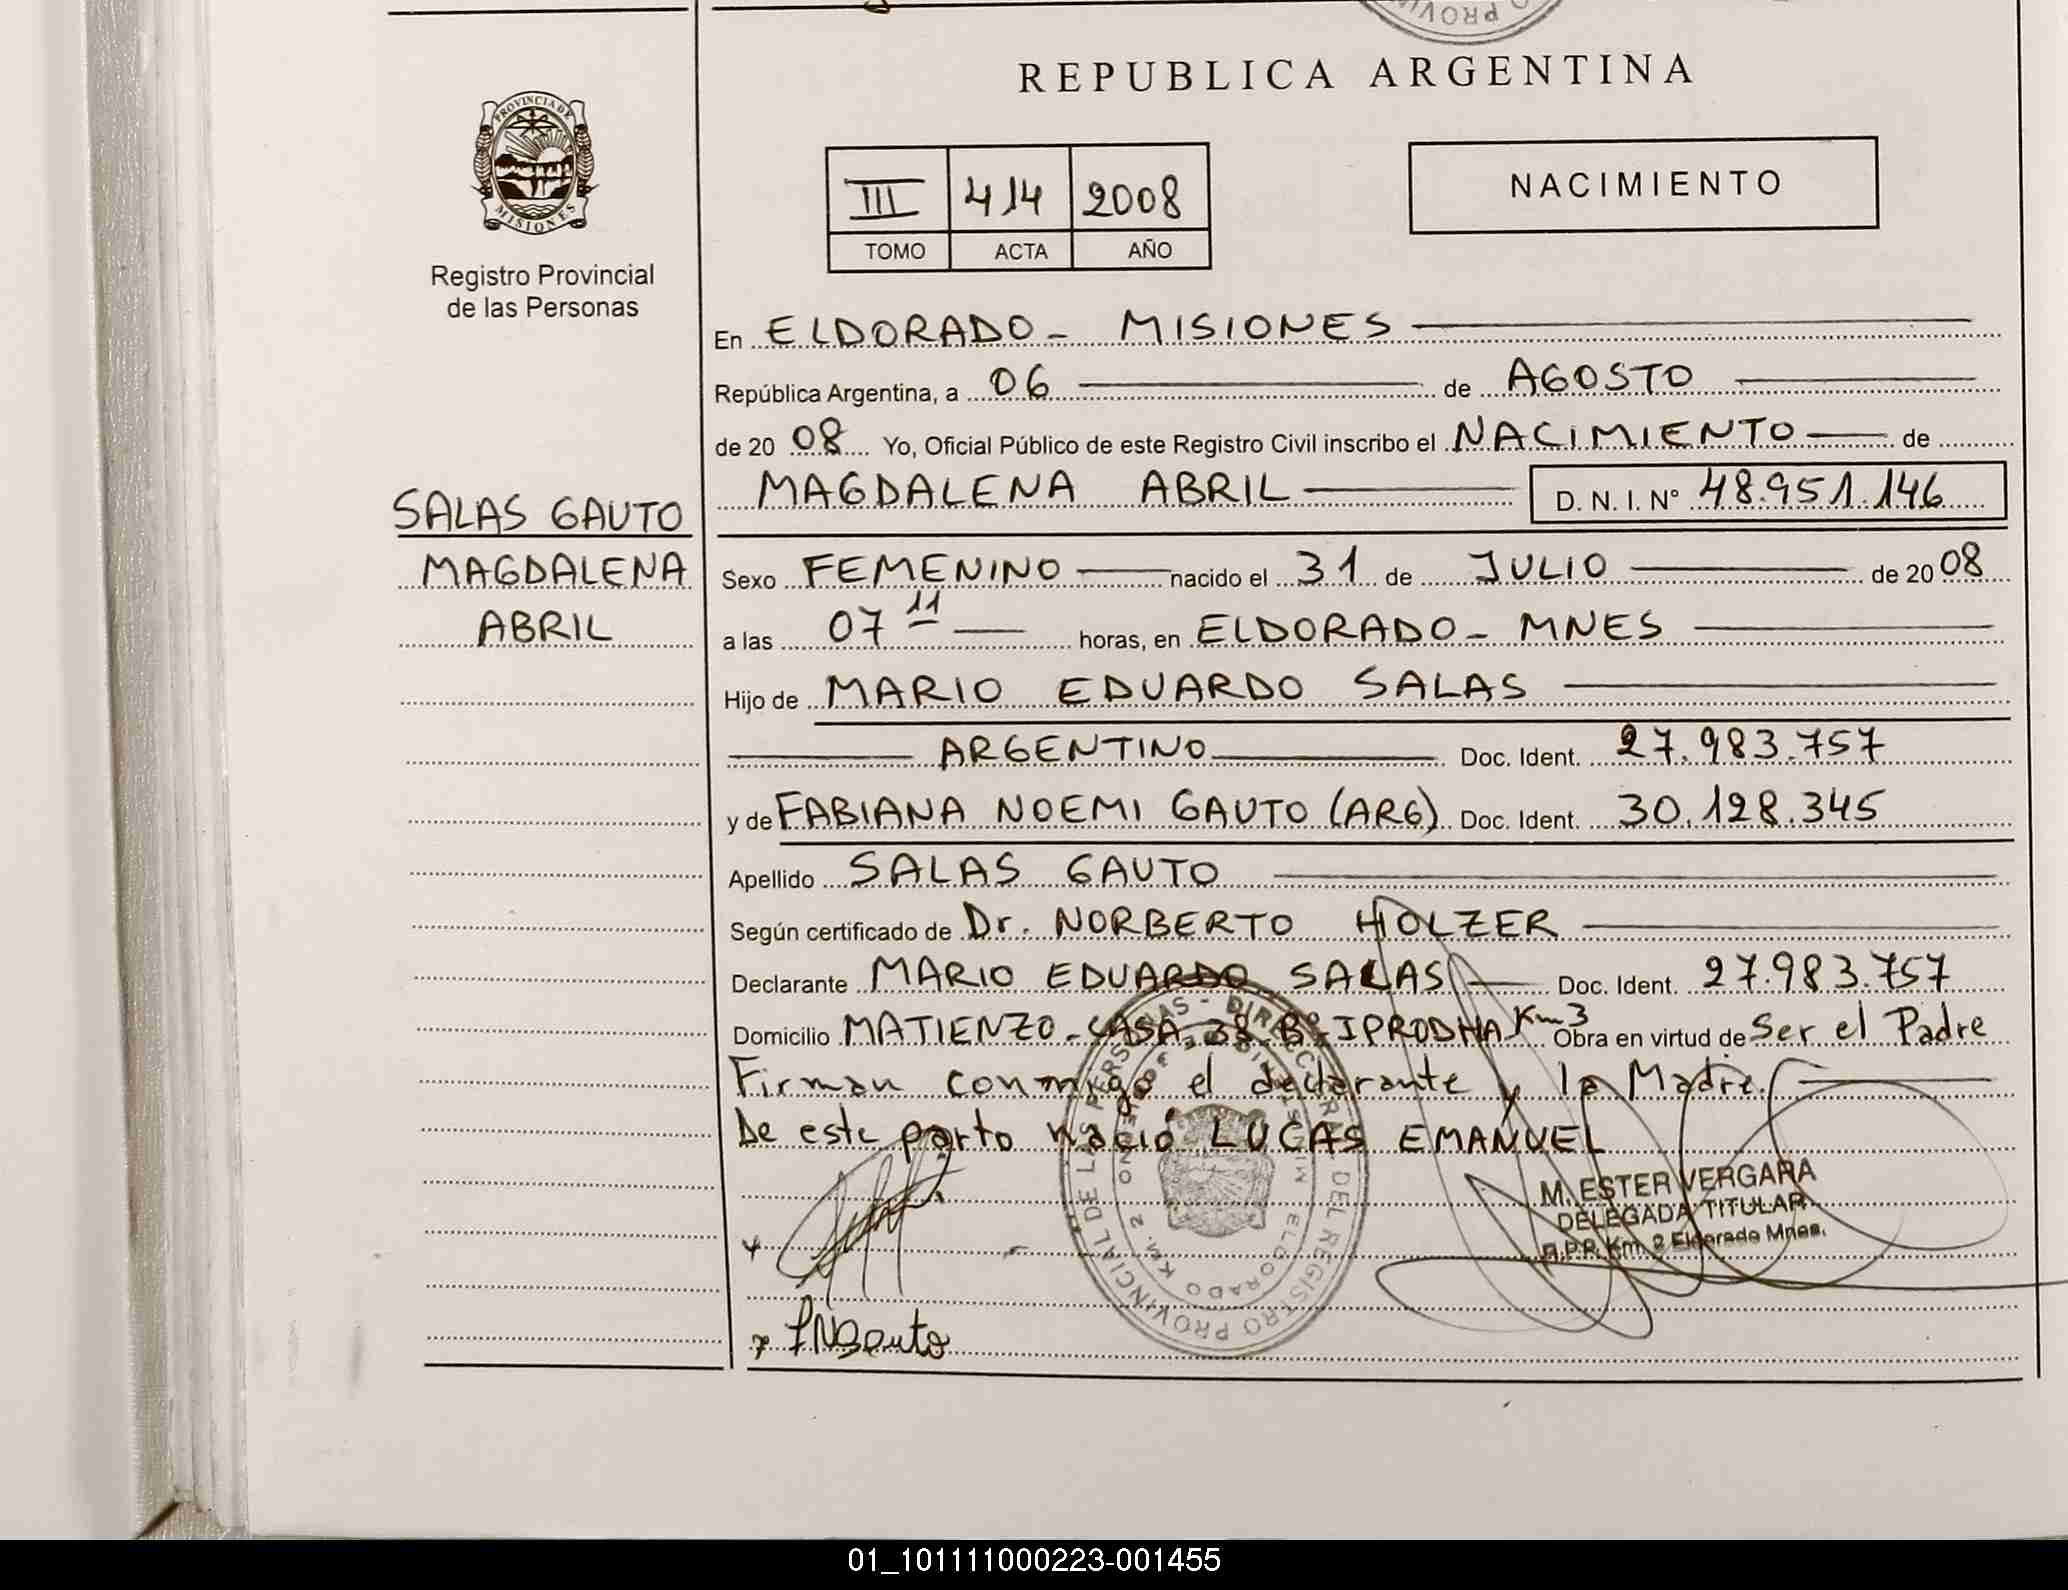 REPUBLICA ARGENTINA
PROVINCIA DE
MISIONES
Registro Provincial
de las Personas
III 414 2008
TOMO ACTA AÑO
NACIMIENTO
En ELDORADO - MISIONES
República Argentina, a 06 de AGOSTO
de 20 08 Yo, Oficial Público de este Registro Civil inscribo el NACIMIENTO de
MAGDALENA ABRIL D. N. I. N° 48.951.146
SALAS GAUTO
MAGDALENA
ABRIL
Sexo FEMENINO nacido el 31 de JULIO de 20 08
a las 07 11 horas, en ELDORADO - MNES
Hijo de MARIO EDUARDO SALAS
ARGENTINO Doc. Ident. 27.983.757
y de FABIANA NOEMI GAUTO (ARG) Doc. Ident. 30.128.345
Apellido SALAS GAUTO
Según certificado de Dr. NORBERTO HOLZER
Declarante MARIO EDUARDO SALAS Doc. Ident. 27.983.757
Domicilio MATIENZO - CASA 38 B° IPRODHA Km 3 Obra en virtud de Ser el Padre
Firman conmigo el declarante y la Madre.
De este parto nació LUCAS EMANUEL
M. ESTER VERGARA
DELEGADA TITULAR
R.P.P. Km. 2 Eldorado Mnes.
DIRECC. DEL REGISTRO PROVINCIAL DE LAS PERSONAS
ELDORADO KM. 2
FNGauto
01_101111000223-001455